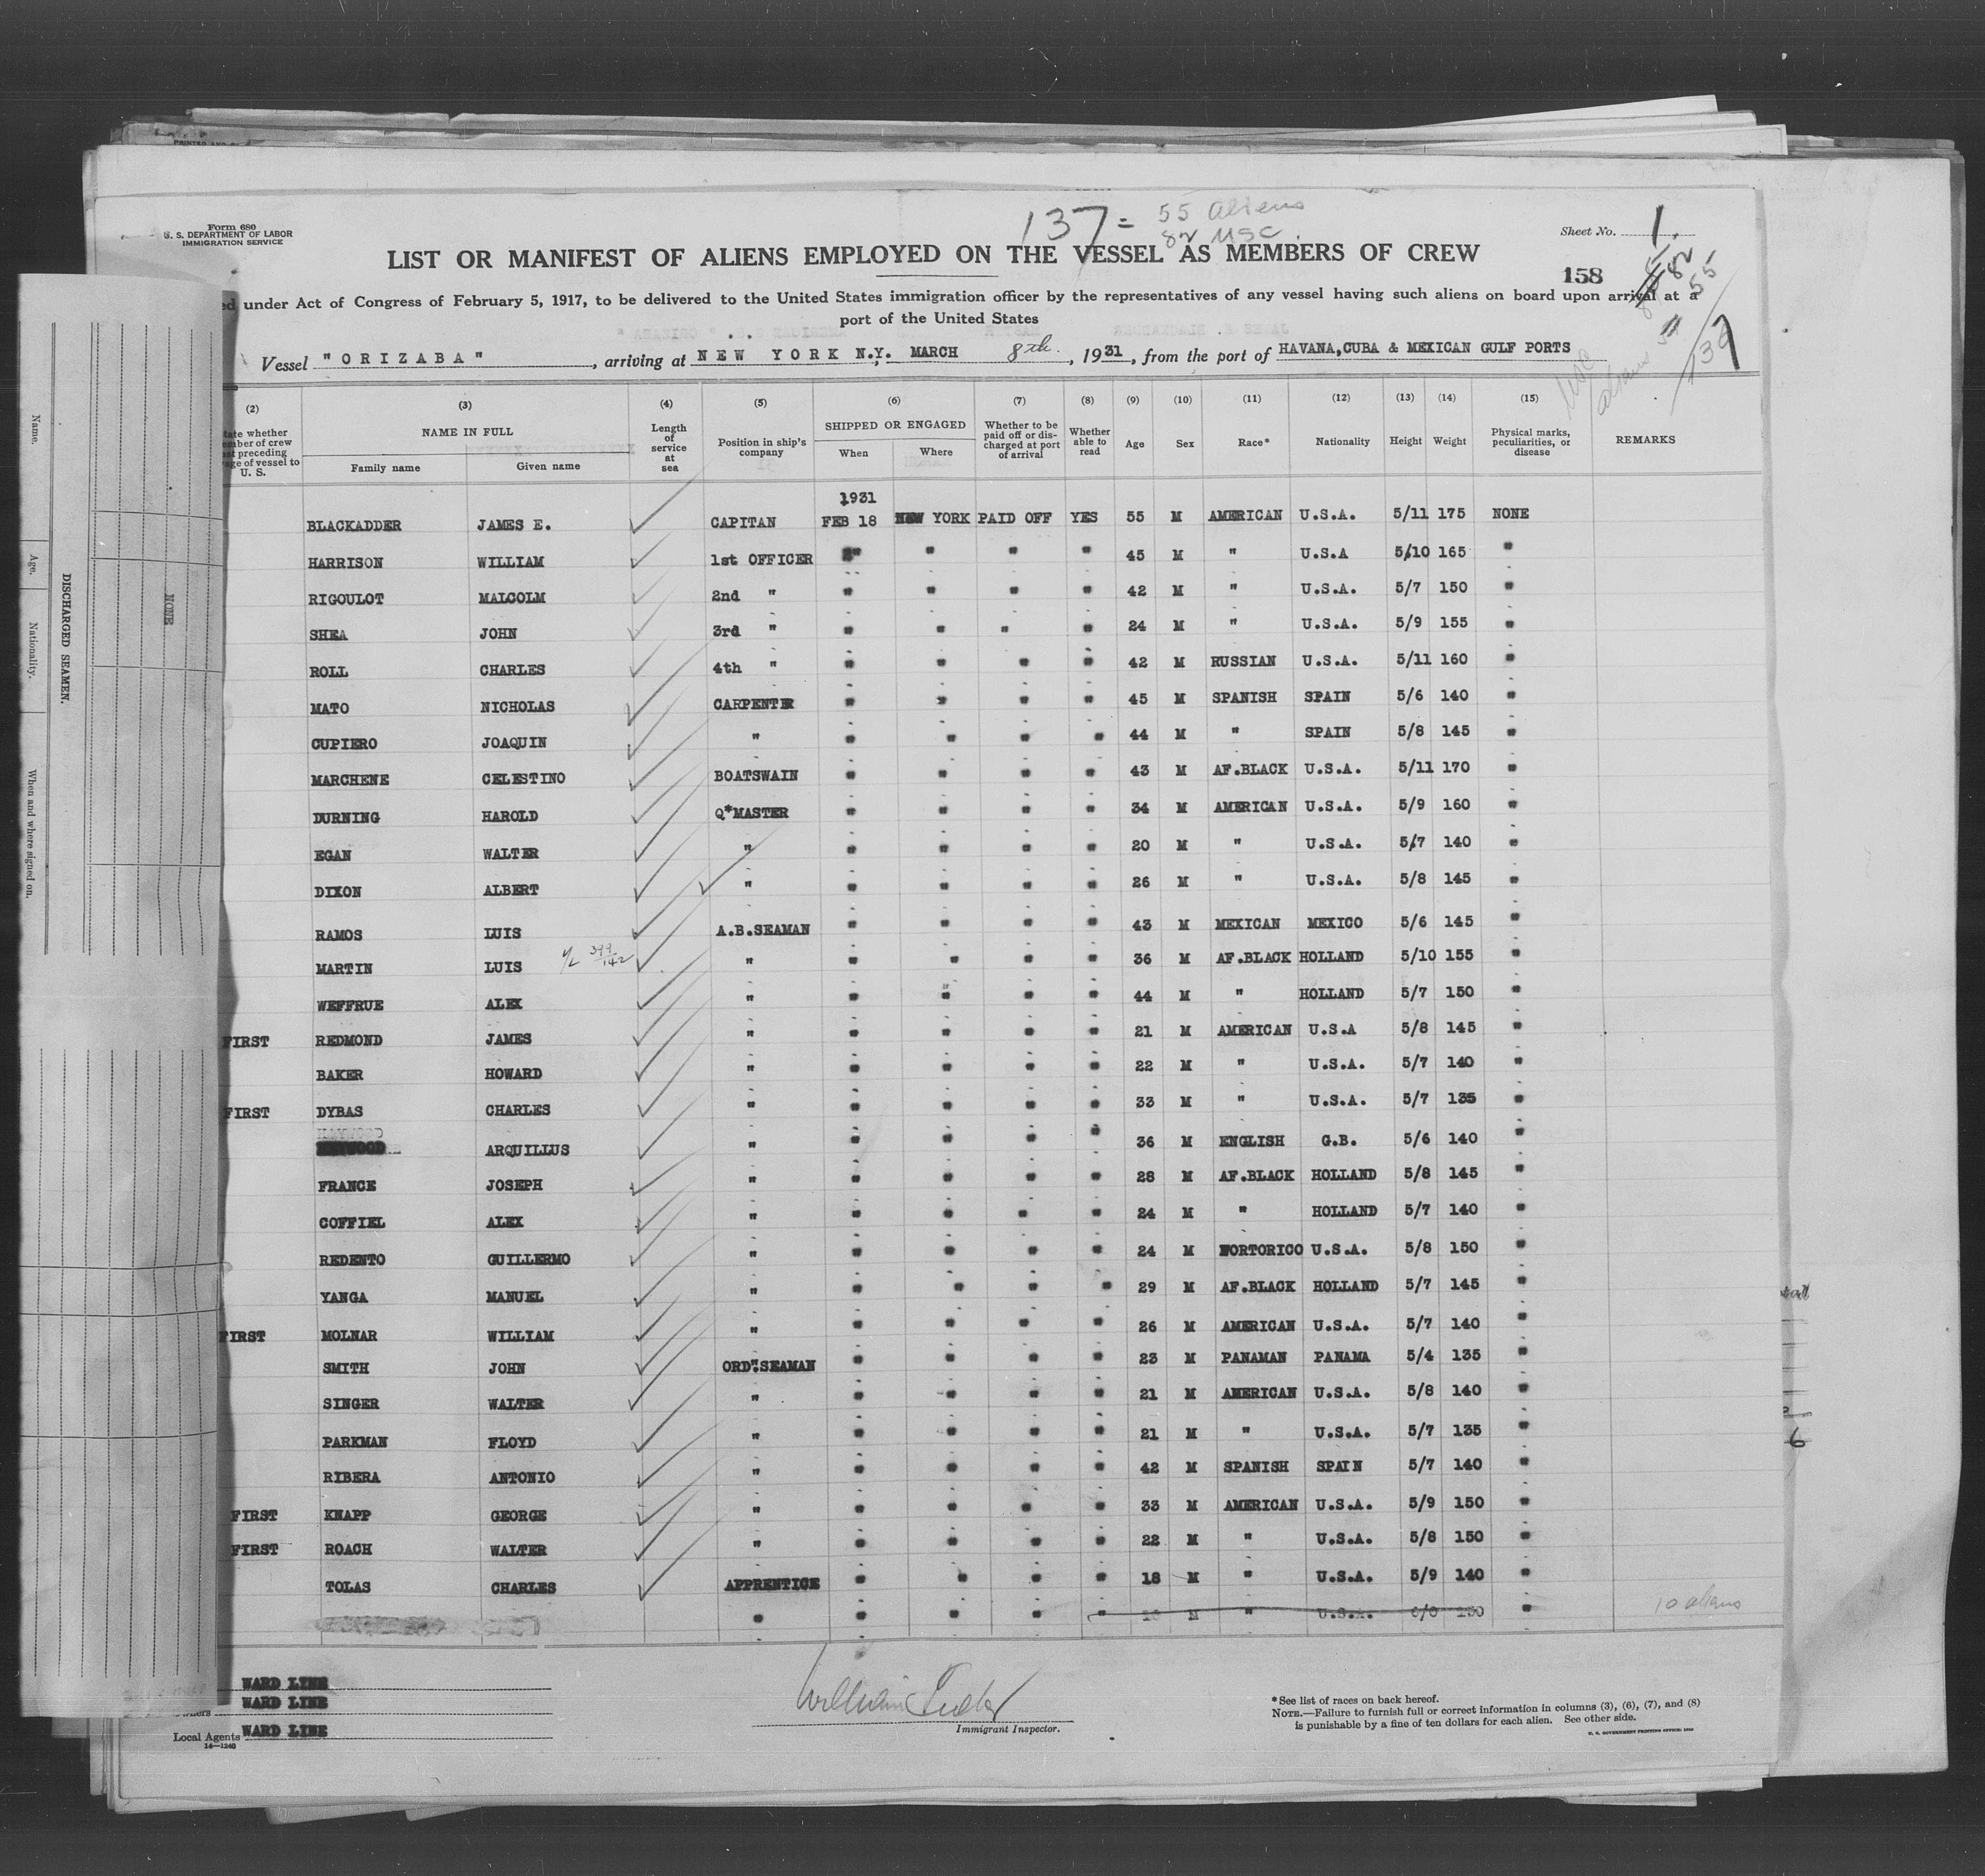 137 = 55 aliens
82 USC
Form 680
U. S. DEPARTMENT OF LABOR
IMMIGRATION SERVICE
Sheet No. 1.
LIST OR MANIFEST OF ALIENS EMPLOYED ON THE VESSEL AS MEMBERS OF CREW
158
82
55
137
ed under Act of Congress of February 5, 1917, to be delivered to the United States immigration officer by the representatives of any vessel having such aliens on board upon arrival at a
port of the United States
Vessel "ORIZABA", arriving at NEW YORK N.Y. MARCH 8th., 1931, from the port of HAVANA,CUBA & MEXICAN GULF PORTS
(2) (3) (4) (5) (6) (7) (8) (9) (10) (11) (12) (13) (14) (15)
ate whether
ember of crew
preceding
age of vessel to
U. S.
NAME IN FULL
Family name Given name
Length
of
service
at
sea
Position in ship's
company
SHIPPED OR ENGAGED
When Where
Whether to be
paid off or dis-
charged at port
of arrival
Whether
able to
read
Age Sex Race* Nationality Height Weight
Physical marks,
peculiarities, or
disease
REMARKS
1931
BLACKADDER JAMES E. CAPITAN FEB 18 NEW YORK PAID OFF YES 55 M AMERICAN U.S.A. 5/11 175 NONE
HARRISON WILLIAM 1st OFFICER " " " " 45 M " U.S.A 5/10 165 "
RIGOULOT MALCOLM 2nd " " " " " 42 M " U.S.A. 5/7 150 "
SHEA JOHN 3rd " " " " " 24 M " U.S.A. 5/9 155 "
ROLL CHARLES 4th " " " " " 42 M RUSSIAN U.S.A. 5/11 160 "
MATO NICHOLAS CARPENTER " " " " 45 M SPANISH SPAIN 5/6 140 "
CUPIERO JOAQUIN " " " " " 44 M " SPAIN 5/8 145 "
MARCHENE CELESTINO BOATSWAIN " " " " 43 M AF.BLACK U.S.A. 5/11 170 "
DURNING HAROLD Q*MASTER " " " " 34 M AMERICAN U.S.A. 5/9 160 "
EGAN WALTER " " " " " 20 M " U.S.A. 5/7 140 "
DIXON ALBERT " " " " " 26 M " U.S.A. 5/8 145 "
RAMOS LUIS A.B.SEAMAN " " " " 43 M MEXICAN MEXICO 5/6 145 "
MARTIN LUIS " " " " " 36 M AF.BLACK HOLLAND 5/10 155 "
WEFFRUE ALEX " " " " " 44 M " HOLLAND 5/7 150 "
FIRST REDMOND JAMES " " " " " 21 M AMERICAN U.S.A 5/8 145 "
BAKER HOWARD " " " " " 22 M " U.S.A. 5/7 140 "
FIRST DYBAS CHARLES " " " " " 33 M " U.S.A. 5/7 135 "
ARQUILLUS " " " " " 36 M ENGLISH G.B. 5/6 140 "
FRANCE JOSEPH " " " " " 28 M AF.BLACK HOLLAND 5/8 145 "
COFFIEL ALEX " " " " " 24 M " HOLLAND 5/7 140 "
REDENTO GUILLERMO " " " " " 24 M PORTORICO U.S.A. 5/8 150 "
YANGA MANUEL " " " " " 29 M AF.BLACK HOLLAND 5/7 145 "
FIRST MOLNAR WILLIAM " " " " " 26 M AMERICAN U.S.A. 5/7 140 "
SMITH JOHN ORD".SEAMAN " " " " 23 M PANAMAN PANAMA 5/4 135 "
SINGER WALTER " " " " " 21 M AMERICAN U.S.A. 5/8 140 "
PARKMAN FLOYD " " " " " 21 M " U.S.A. 5/7 135 "
RIBERA ANTONIO " " " " " 42 M SPANISH SPAIN 5/7 140 "
FIRST KNAPP GEORGE " " " " " 33 M AMERICAN U.S.A. 5/9 150 "
FIRST ROACH WALTER " " " " " 22 M " U.S.A. 5/8 150 "
TOLAS CHARLES APPRENTICE " " " " 18 M " U.S.A. 5/9 140 "
" " " " " M " U.S.A. "
10 aliens
WARD LINE
WARD LINE
Local Agents WARD LINE
14—1240
Immigrant Inspector.
*See list of races on back hereof.
NOTE.—Failure to furnish full or correct information in columns (3), (6), (7), and (8)
is punishable by a fine of ten dollars for each alien. See other side.
Name.
Age.
Nationality.
When and where signed on.
DISCHARGED SEAMEN.
NONE
6